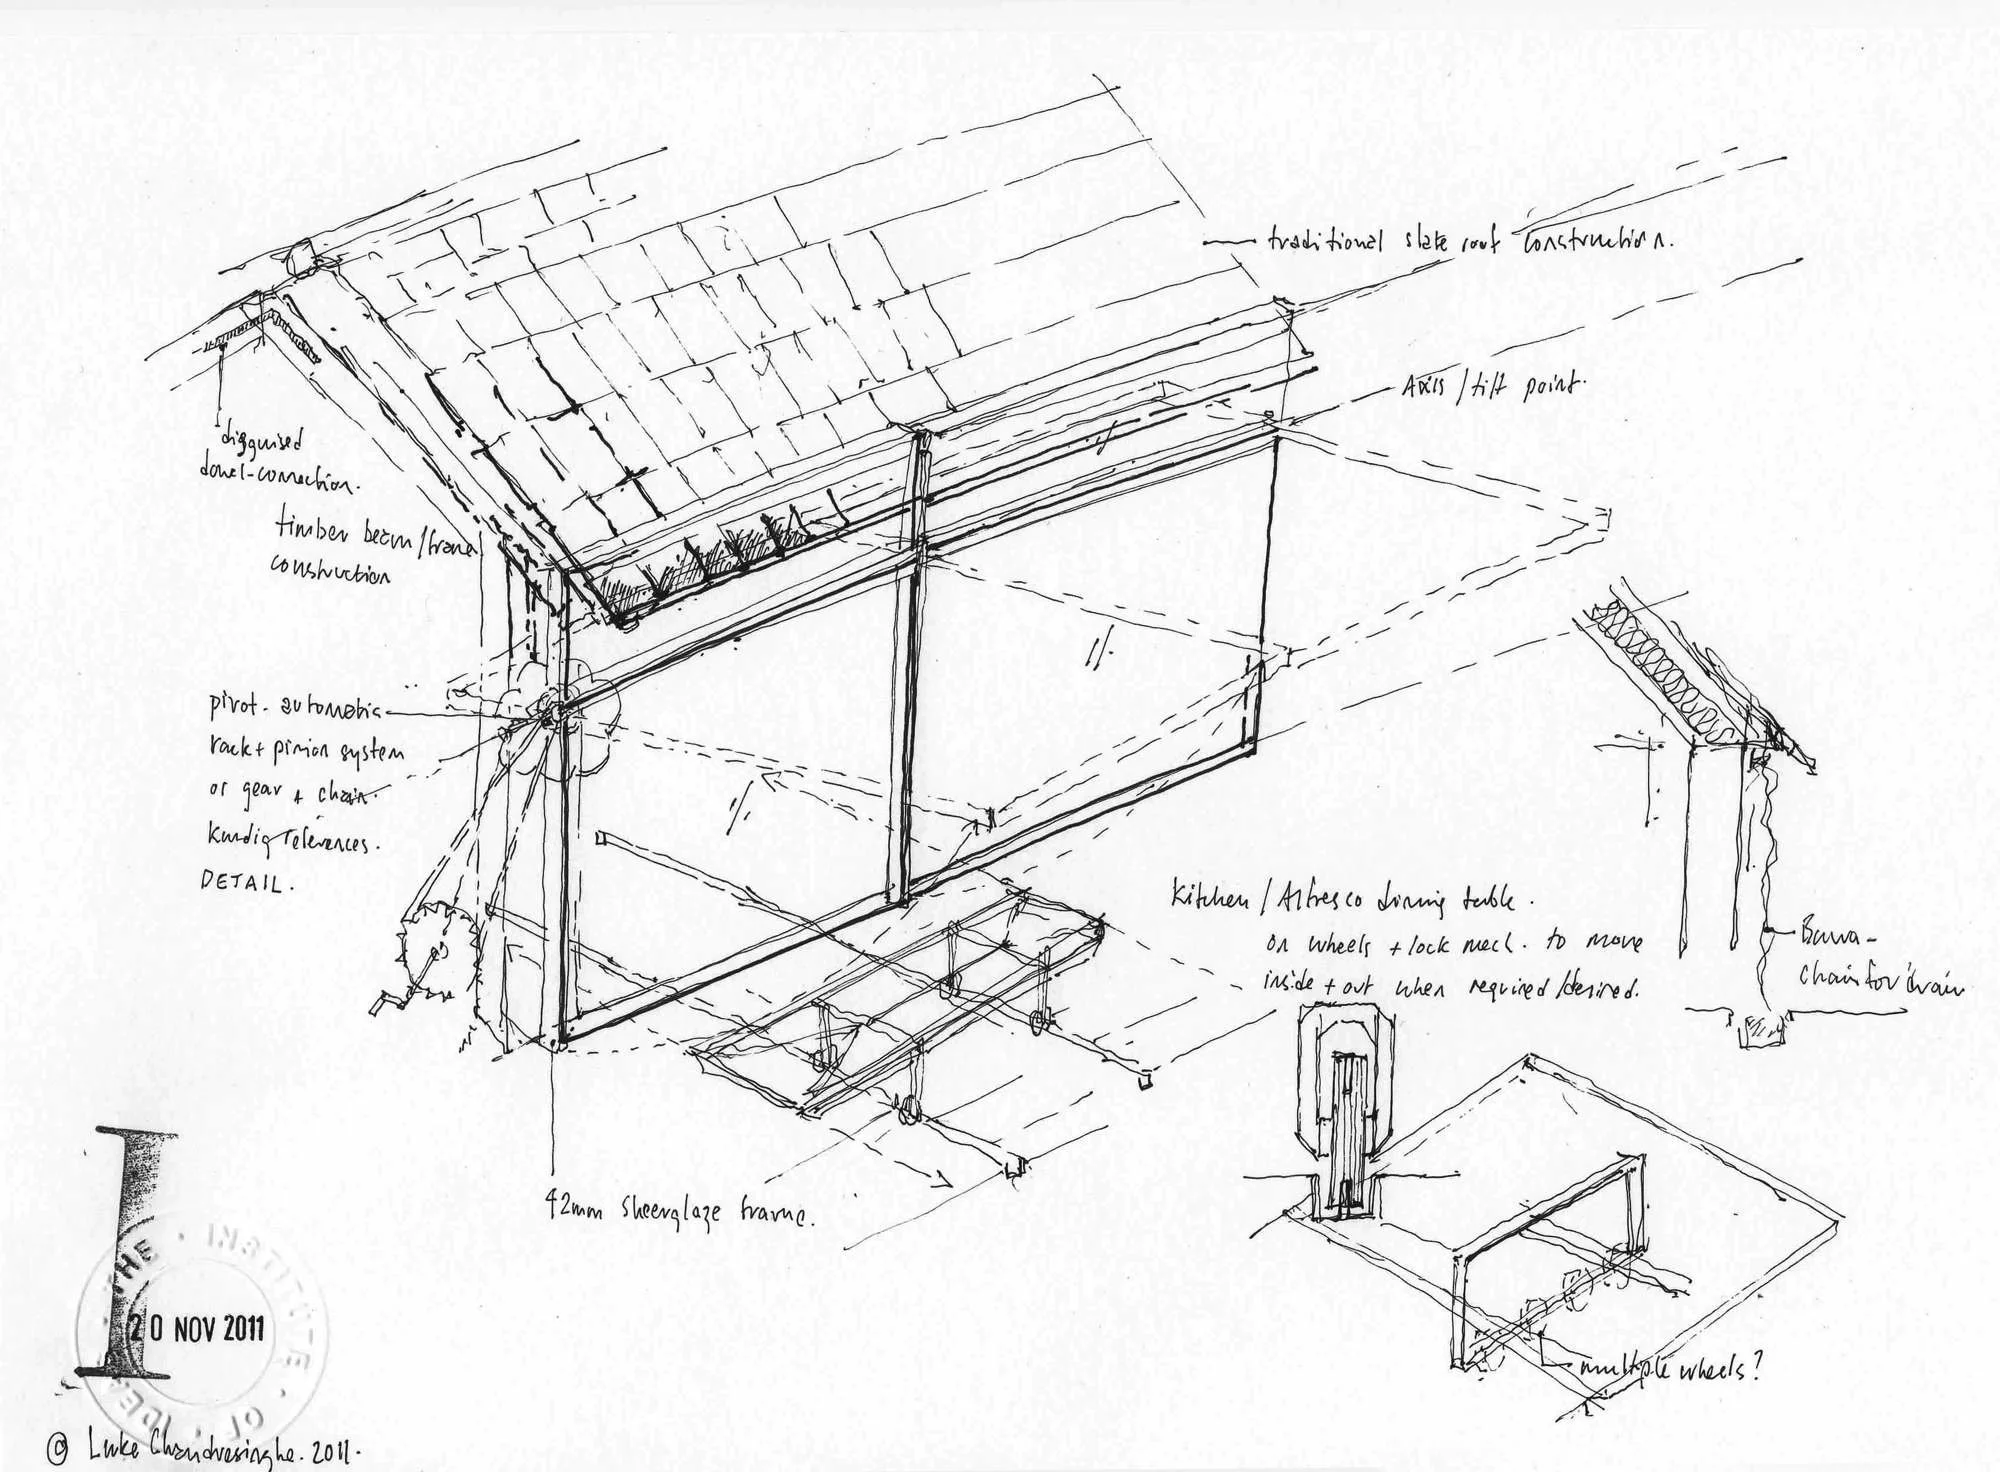 traditional slate roof construction.
Axis / tilt point.
disguised
dowel-connection.
timber beam/frame
construction
pivot - automatic
rack + pinion system
or gear + chain.
Kundig references.
DETAIL.
Kitchen / Alfresco dining table.
on wheels + lock mech. to move
inside + out when required/desired.
Bawa -
Chain for drain
42mm sheerglaze frame.
multiple wheels?
I
THE · INSTITUTE · OF · IDEAS
20 NOV 2011
© Luke Chandresinghe. 2011.